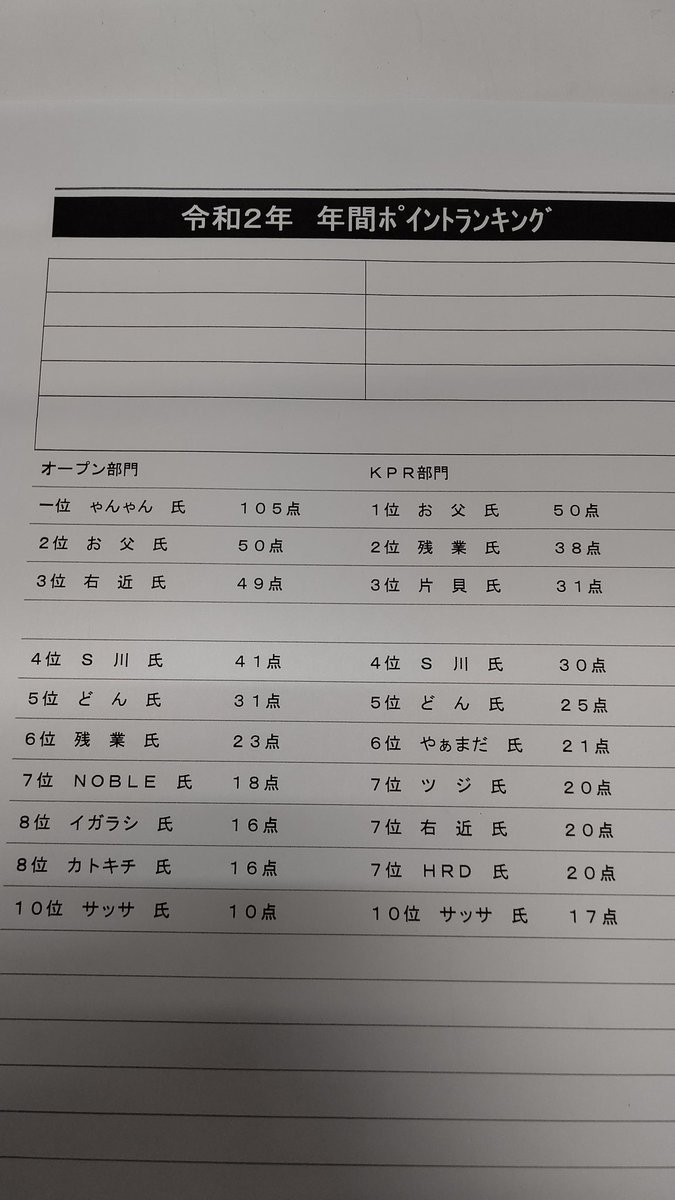 令和2年　年間ﾎﾟイントランキング
オープン部門　KPR部門
一位　ゃんゃん　氏　１０５点　1位　お　父　氏　５０点
2位　お　父　氏　５０点　2位　残　業　氏　３８点
3位　右　近　氏　４９点　3位　片　貝　氏　３１点
4位　Ｓ　川　氏　４１点　4位　Ｓ　川　氏　３０点
5位　ど　ん　氏　３１点　5位　ど　ん　氏　２５点
6位　残　業　氏　２３点　6位　やぁまだ　氏　２１点
7位　ＮＯＢＬＥ　氏　１８点　7位　ツ　ジ　氏　２０点
8位　イガラシ　氏　１６点　7位　右　近　氏　２０点
8位　カトキチ　氏　１６点　7位　ＨＲＤ　氏　２０点
１０位　サッサ　氏　１０点　１０位　サッサ　氏　１７点